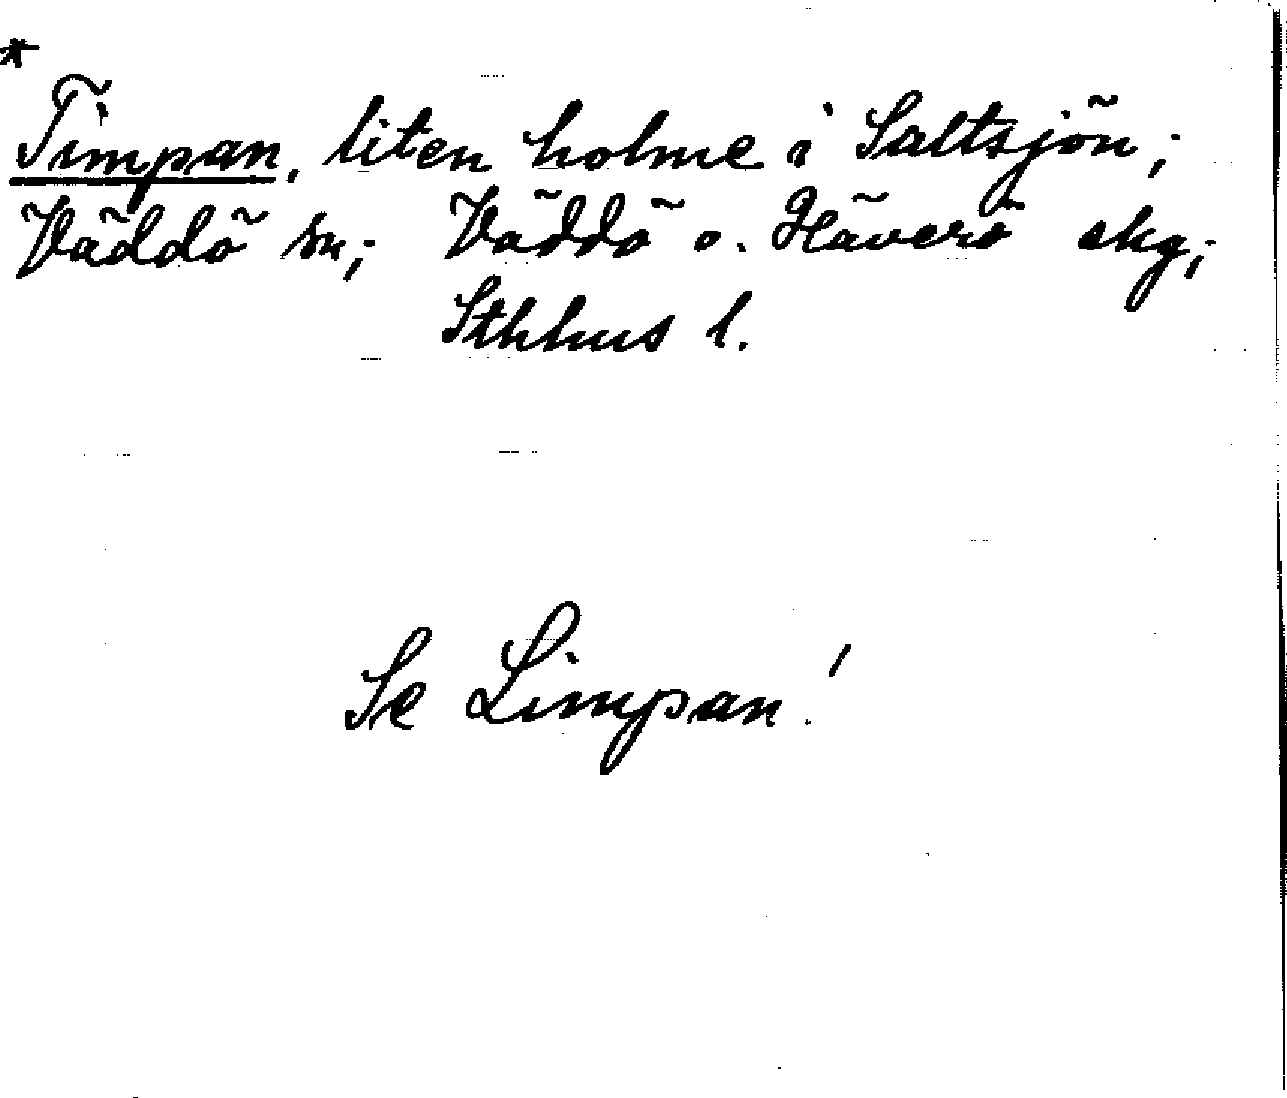 *
Timpan, liten holme i Saltsjön;
Väddö sn; Väddö o. Häverö skg;
Sthlms l.
Se Limpan!